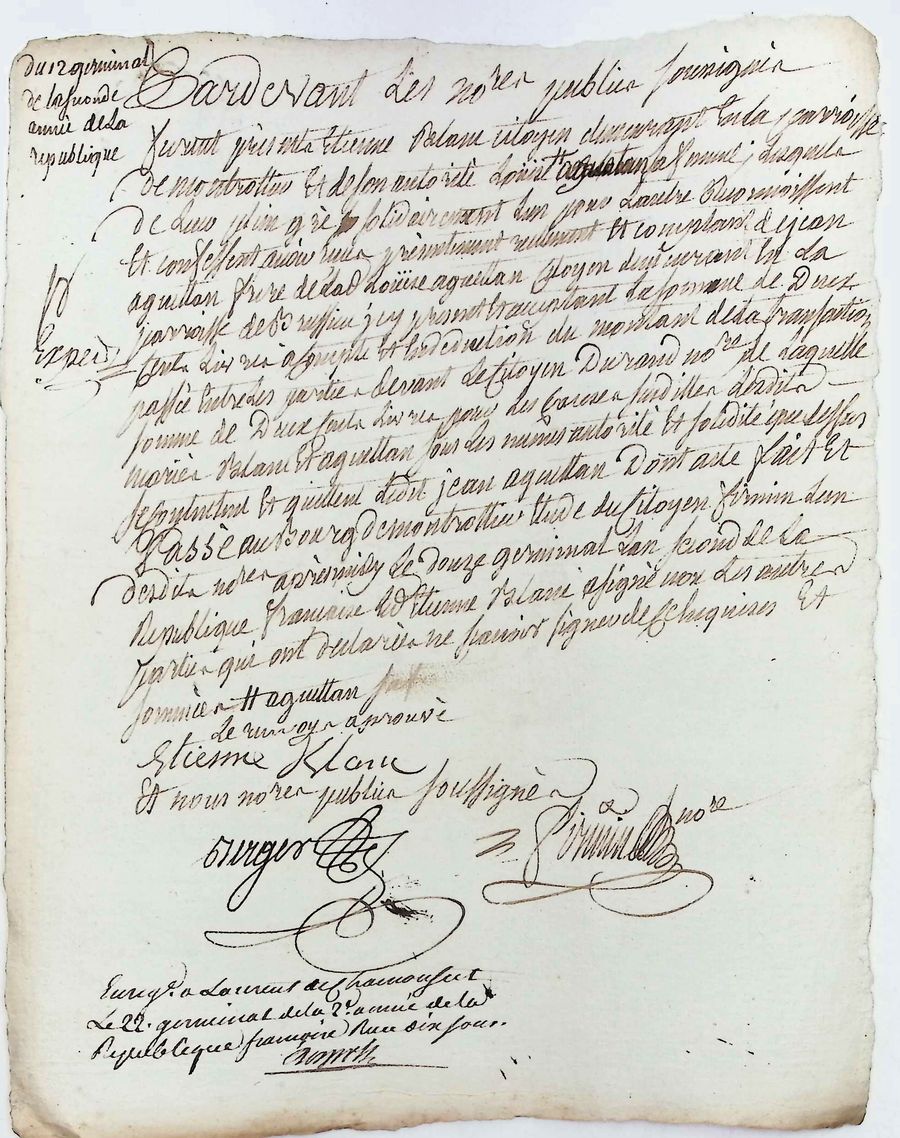 Du 12 germinal
de la seconde
année de la
republique
Expedi
Pardevant Les no.res publics soussignés
furent présents Etienne Blanc citoyen demeurant en la parroisse
de montrottier Et de son autorité Louise aguettan sa femme, Lesquels
de Leur plein gré solidairement L'un pour L'autre Reconnoissent
Et confessent avoir reçu présentement réelment Et comptant de jean
aguettan frere de lad. Louise aguettan Citoyen demeurant En La
parroisse de Brussieu, icy present Et acceptant La somme de Deux
Cents Livres àcompte et En deduction du montant de la transaction
passée Entre Les parties devant Le Citoyen Durand no.re de Laquelle
somme de Deux Cents Livres pour Les Causes susdittes Lesdits
mariés Blanc Et aguettan sous Les mêmes autorité Et solidité que dessus
se contentent Et quittent Ledit jean aguettan Dont acte fait Et
Passé au Bourg de montrottier Etude du Citoyen firmin L'un
desdits no.res après midy Le douze germinal L'an second de La
Republique francaise Led. Etienne Blanc a signé non Les autres
parties qui ont declarées ne scavoir signer de ce Enquises Et
sommées # aguettan
Le renvoy approuvé
Etienne Blanc
Et nous no.res publics soussignés
Berger
firmin no.re
Enreg.é a Laurent de Chamousset
Le 22. germinal de la 2.e année de la
Republique francoise Reçu dix sous.